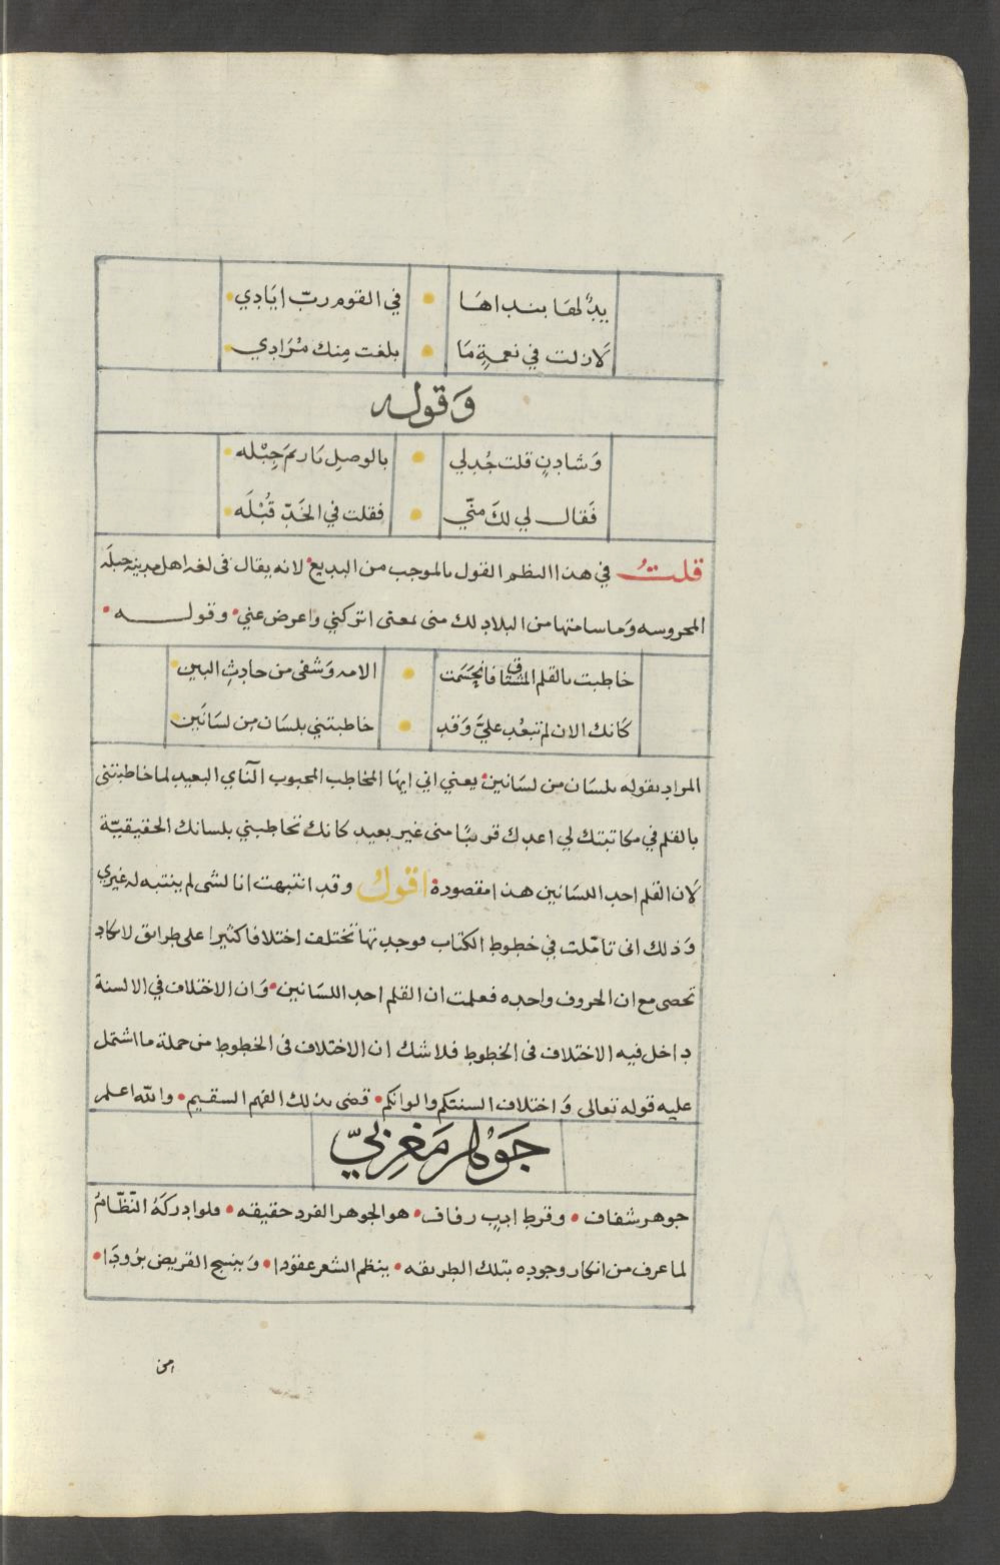 يدٌ لها بنداها • في القوم ربّ ايَادِي •
لَازلت في نعمةٍ مَا • بلغت مِنك مُرَادِي •
وَقوله
وَشادِنٍ قلت جُد لي • بالوصل يَا ريمَ جِبْله •
فَقال لي لكَ منّي • فقلت في الخَدّ قُبْلَه •
قلتُ في هذا النظم القول بالموجب من البديع • لانه يقال في لغه اهل مدينه جبلَه
المحروسه وَما سامتها من البلاد لك منى بمعنى اتركني واعرض عني • وقوله •
خاطبت بالقلم المشتاق فانحسَمت • الامه وَشفى من حادِثِ البين •
كَانك الان لم تبعُد عليَّ وَقد • خاطبتني بلسَان مِن لسَانَين •
المراد بقوله بلسَان من لسَانين • يعني اني ايهَا المخاطب المحبوب النَّاي البعيد لما خاطبتنى
بالقلم في مكاتبتك لي اعدك قريبًا منى غير بعيد كانك تخاطبني بلسانك الحقيقيّة
لَان القلم احد اللسَانين هذا مقصوده اقولُ وقد انتبهت انا لشى لم ينتبه له غيري
وَذلك انى تامّلت في خطوط الكتاب فوجدتها تختلف اختلافا كثيرا على طرايق لا تكاد
تحصى مع ان الحروف واحده فعلمت ان القلم احد اللسَانين • وَان الاختلاف في الالسنة
داخل فيه الاختلاف فى الخطوط فلا شك ان الاختلاف فى الخطوط من جملة ما اشتمل
عليه قوله تعالى وَاختلاف السنتكم والوانكم • قضى بذلك الفهم السقيم • والله اعلم
جَوْهر مَغربيّ
جوهر شفاف • وقرط اديب رفاف • هو الجوهر الفرد حقيقه • فلو ادركَهُ النّظّامُ
لما عرف من انكار وجوده بتلك الطريقه • ينظم الشعر عقودا • وَينسج القريض برُودَا •
امن